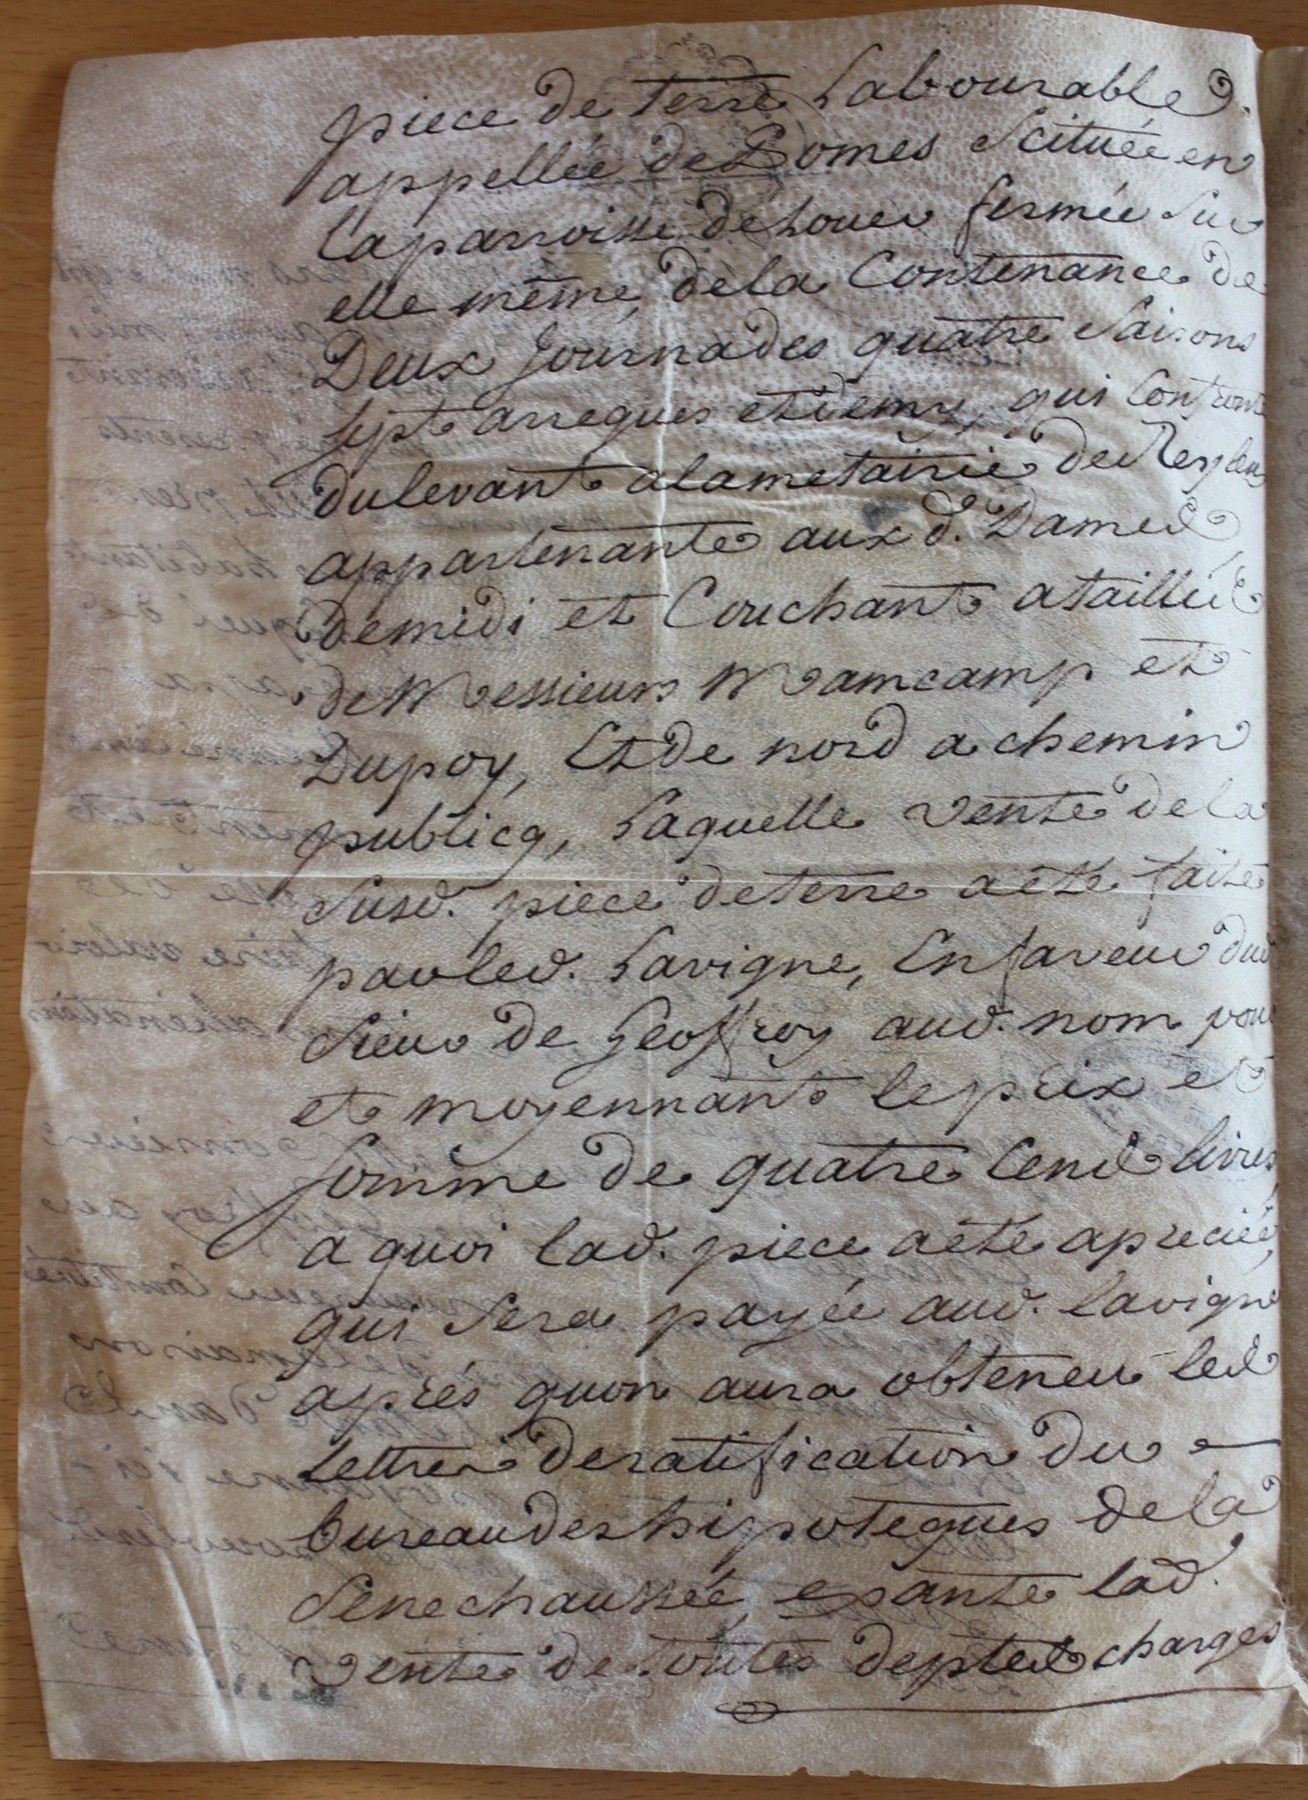 piece de terre Labourable
appellée de Lomes Scituée en
la parroisse de Louer fermée Sur
elle même, de la Contenance de
Deux journades quatre Saisons
sept arregues et demy, qui Confronte
du levant a la metairie de
appartenante aux d. Dames,
de midi et Couchant a taillis
de Messieurs Mamcamp et
Dupoy, Et de nord a chemin
publicq, Laquelle vente de la
Susd. piece de terre a été faite
par led. Lavigne, En faveur dud
Sieur de Geoffroy aud. nom pour
et moyennant le prix et
somme de quatre Cens livres
a quoi lad. piece a été apreciée,
qui Sera payée aud. lavigne
aprés quon aura obteneu les
Lettres de ratification du
bureau des hipoteques de la
Senechaussée, exante lad.
vente de toutes deptes charges